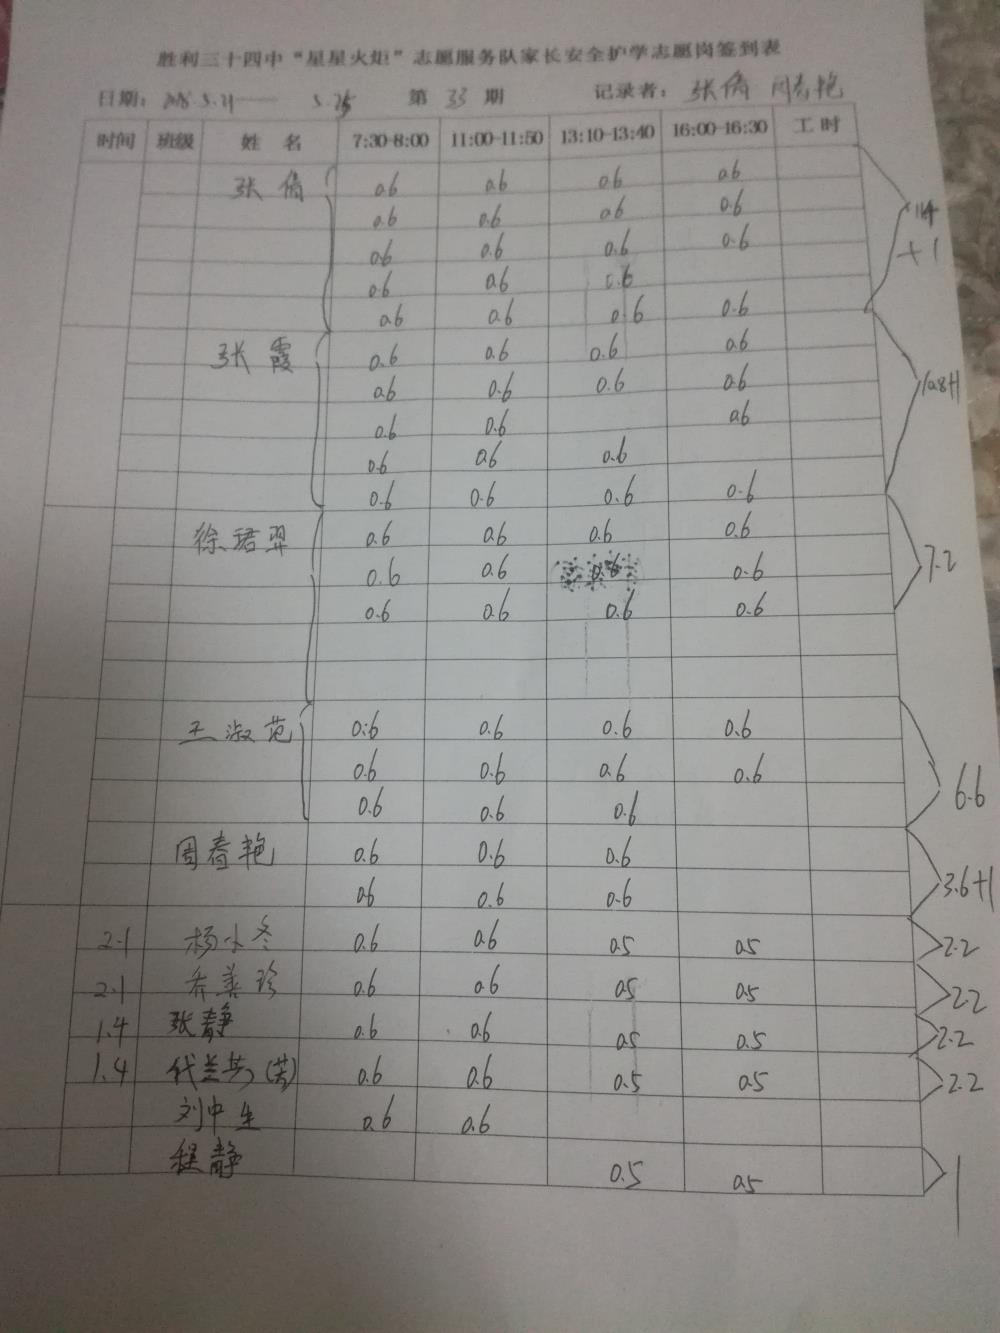 胜利三十四中“星星火炬”志愿服务队家长安全护学志愿岗签到表
日期: 2018.5.21—— 5.25 第 33 期 记录者: 张倩 周春艳
时间 班级 姓 名 7:30-8:00 11:00-11:50 13:10-13:40 16:00-16:30 工时
张倩 0.6 0.6 0.6 0.6
0.6 0.6 0.6 0.6 11.4
0.6 0.6 0.6 0.6 +1
0.6 0.6 0.6
0.6 0.6 0.6 0.6
张霞 0.6 0.6 0.6 0.6
0.6 0.6 0.6 0.6 10.8+1
0.6 0.6 0.6
0.6 0.6 0.6
0.6 0.6 0.6 0.6
徐珺羿 0.6 0.6 0.6 0.6
0.6 0.6 0.6 0.6 7.2
0.6 0.6 0.6 0.6
王淑范 0.6 0.6 0.6 0.6
0.6 0.6 0.6 0.6 6.6
0.6 0.6 0.6
周春艳 0.6 0.6 0.6
0.6 0.6 0.6 3.6+1
2.1 杨小冬 0.6 0.6 0.5 0.5 2.2
2.1 乔善珍 0.6 0.6 0.5 0.5 2.2
1.4 张静 0.6 0.6 0.5 0.5 2.2
1.4 代兰芳(芳) 0.6 0.6 0.5 0.5 2.2
刘中生 0.6 0.6
程静 0.5 0.5 1